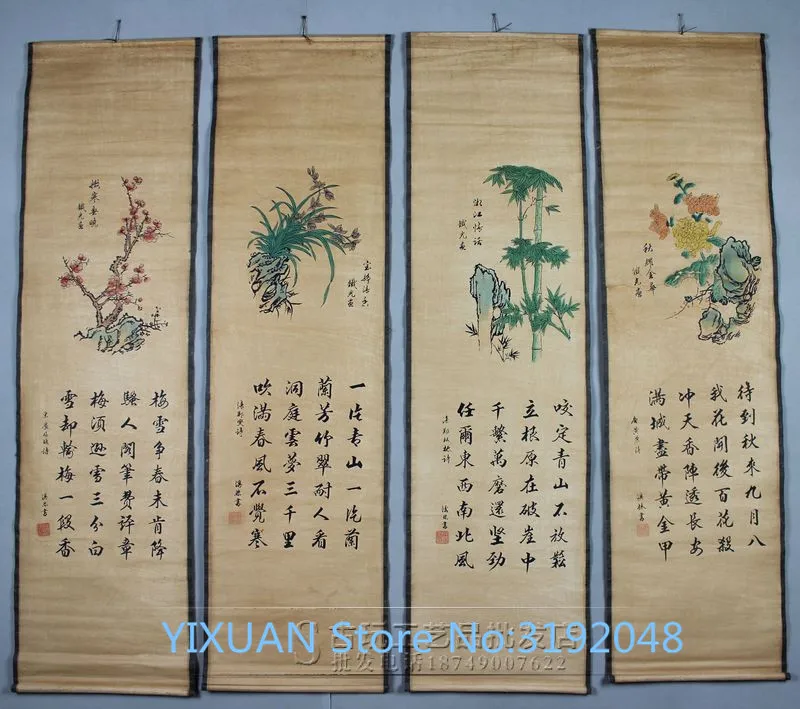 梅雪争春未肯降
騷人閣筆費評章
梅須遜雪三分白
雪却輸梅一段香
一片青山一片蘭
蘭芳竹翠耐人看
洞庭雲夢三千里
吹滿春風不覺寒
清鄭燮詩
湘江情話
咬定青山不放鬆
立根原在破崖中
千擊萬磨還堅勁
任爾東西南北風
清鄭板橋詩
待到秋來九月八
我花開後百花殺
冲天香陣透長安
滿城盡帶黄金甲
唐黄巢詩
YIXUAN Store No:3192048
古玩工艺品批发店
批发电话18749007622